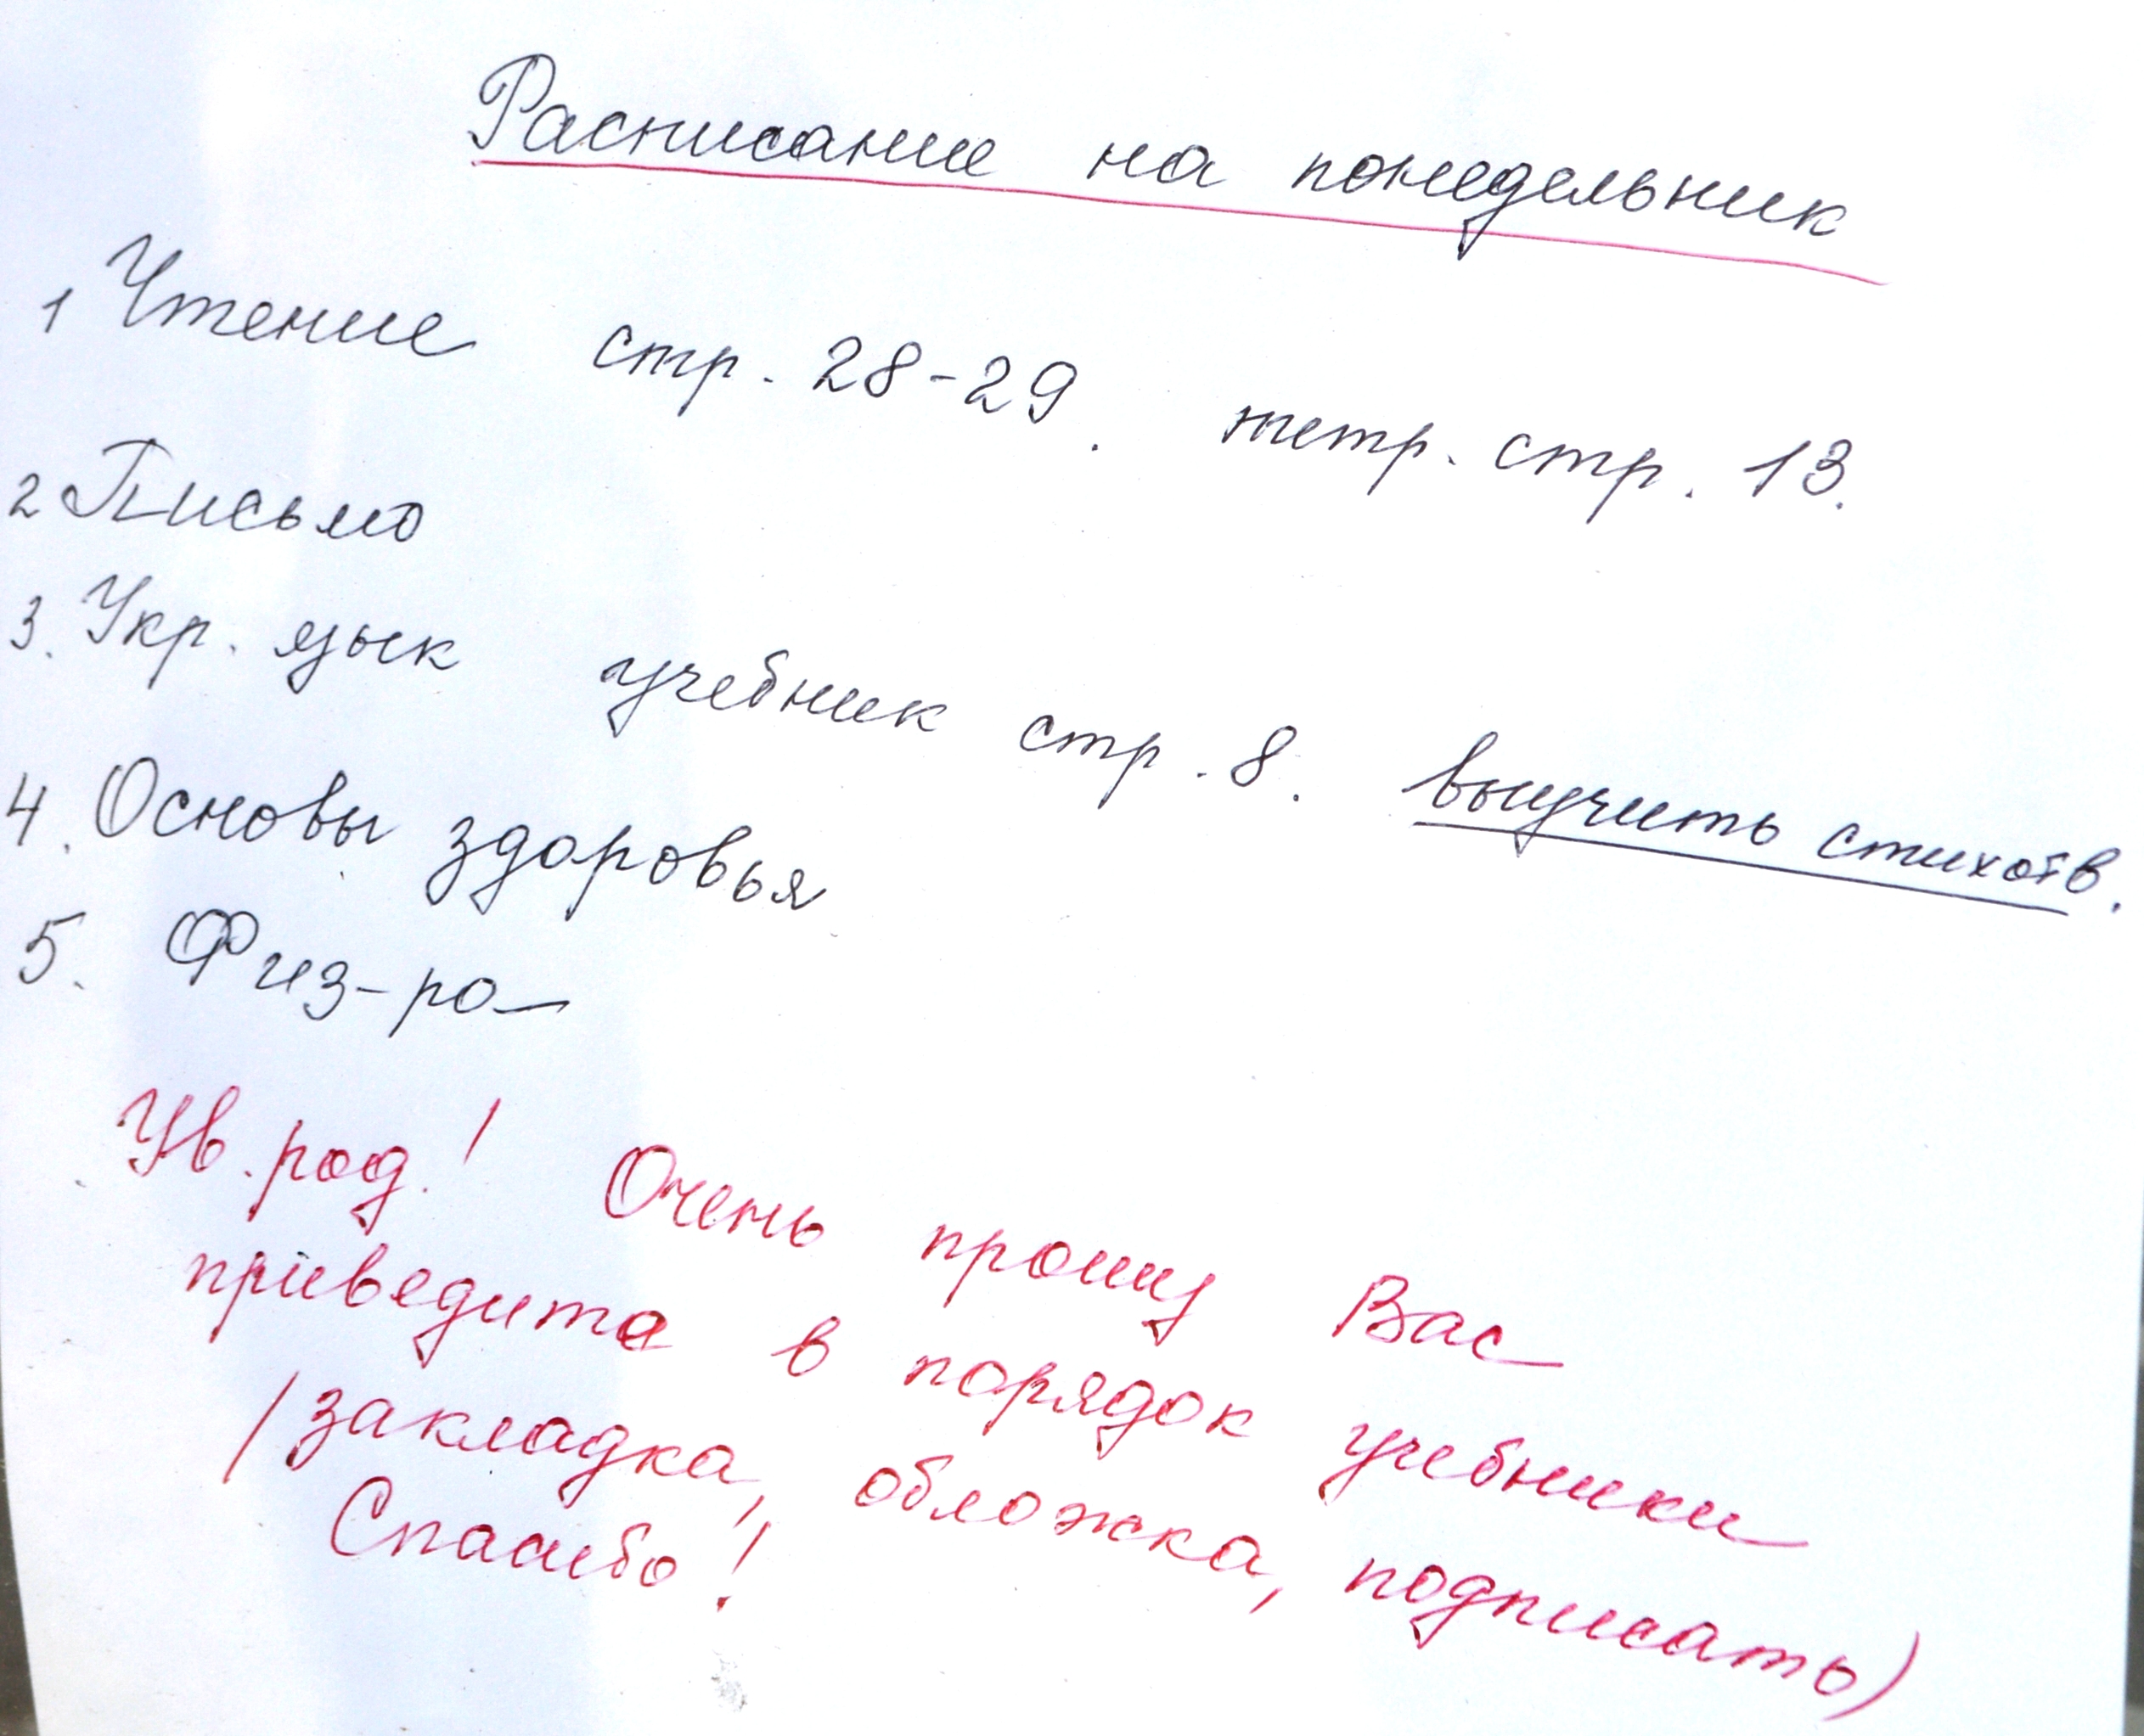 Расписание на понедельник
1 Чтение стр. 28-29. тетр. стр. 13.
2 Письмо
3. Укр. язык учебник стр. 8. выучить стихотв.
4. Основы здоровья
5. Физ-ра
Ув. род.! Очень прошу Вас
приведите в порядок учебники
/закладка, обложка, подписать)
Спасибо!